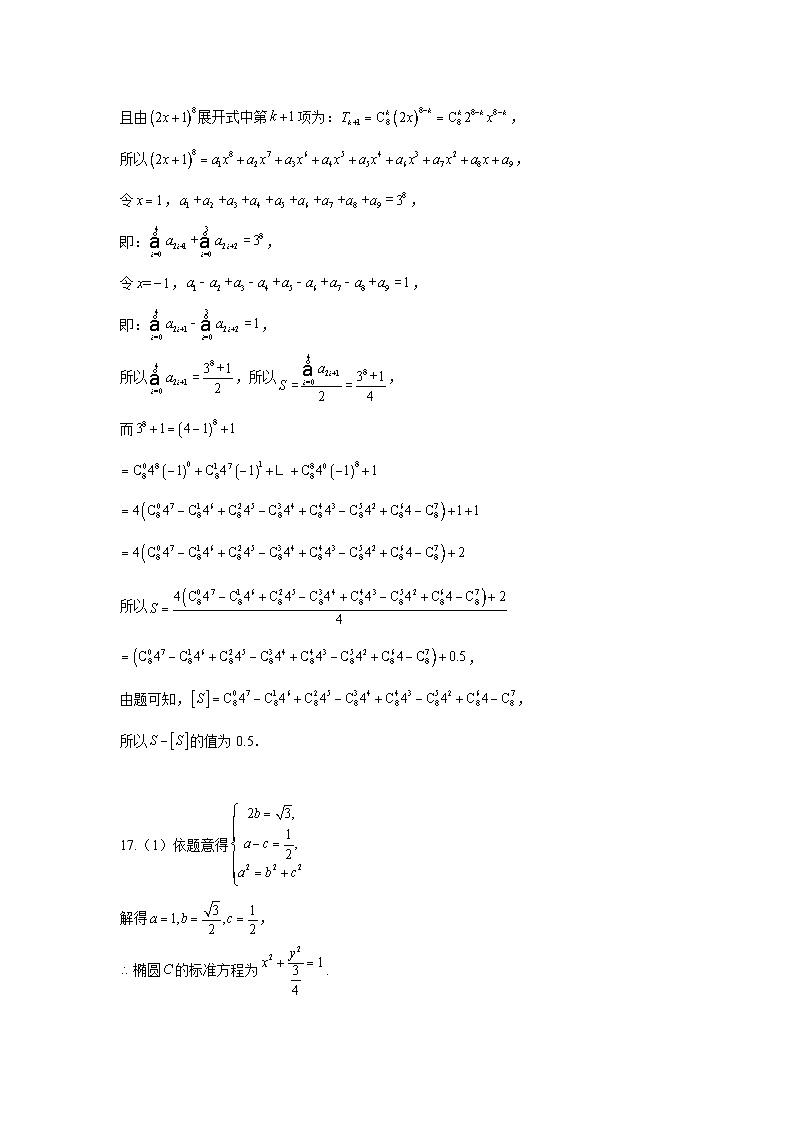 且由(2x+1)⁸展开式中第k+1项为：T_{k+1}=C₈ᵏ(2x)^{8−k}=C₈ᵏ2^{8−k}x^{8−k}，
所以(2x+1)⁸=a₁x⁸+a₂x⁷+a₃x⁶+a₄x⁵+a₅x⁴+a₆x³+a₇x²+a₈x+a₉，
令x=1，a₁+a₂+a₃+a₄+a₅+a₆+a₇+a₈+a₉=3⁸，
即：å_{i=0}^{4} a_{2i+1}+å_{i=0}^{3} a_{2i+2}=3⁸，
令x=−1，a₁-a₂+a₃-a₄+a₅-a₆+a₇-a₈+a₉=1，
即：å_{i=0}^{4} a_{2i+1}-å_{i=0}^{3} a_{2i+2}=1，
所以å_{i=0}^{4} a_{2i+1}=\frac{3⁸+1}{2}，所以S=\frac{å_{i=0}^{4} a_{2i+1}}{2}=\frac{3⁸+1}{4}，
而3⁸+1=(4−1)⁸+1
=C₈⁰4⁸(−1)⁰+C₈¹4⁷(−1)¹+L+C₈⁸4⁰(−1)⁸+1
=4(C₈⁰4⁷−C₈¹4⁶+C₈²4⁵−C₈³4⁴+C₈⁴4³−C₈⁵4²+C₈⁶4−C₈⁷)+1+1
=4(C₈⁰4⁷−C₈¹4⁶+C₈²4⁵−C₈³4⁴+C₈⁴4³−C₈⁵4²+C₈⁶4−C₈⁷)+2
所以S=\frac{4(C₈⁰4⁷−C₈¹4⁶+C₈²4⁵−C₈³4⁴+C₈⁴4³−C₈⁵4²+C₈⁶4−C₈⁷)+2}{4}
=(C₈⁰4⁷−C₈¹4⁶+C₈²4⁵−C₈³4⁴+C₈⁴4³−C₈⁵4²+C₈⁶4−C₈⁷)+0.5，
由题可知，[S]=C₈⁰4⁷−C₈¹4⁶+C₈²4⁵−C₈³4⁴+C₈⁴4³−C₈⁵4²+C₈⁶4−C₈⁷，
所以S−[S]的值为0.5.
17.（1）依题意得{2b=√3, a−c=\frac{1}{2}, a²=b²+c²
解得a=1,b=\frac{√3}{2},c=\frac{1}{2}，
∴椭圆C的标准方程为x²+\frac{y²}{\frac{3}{4}}=1.